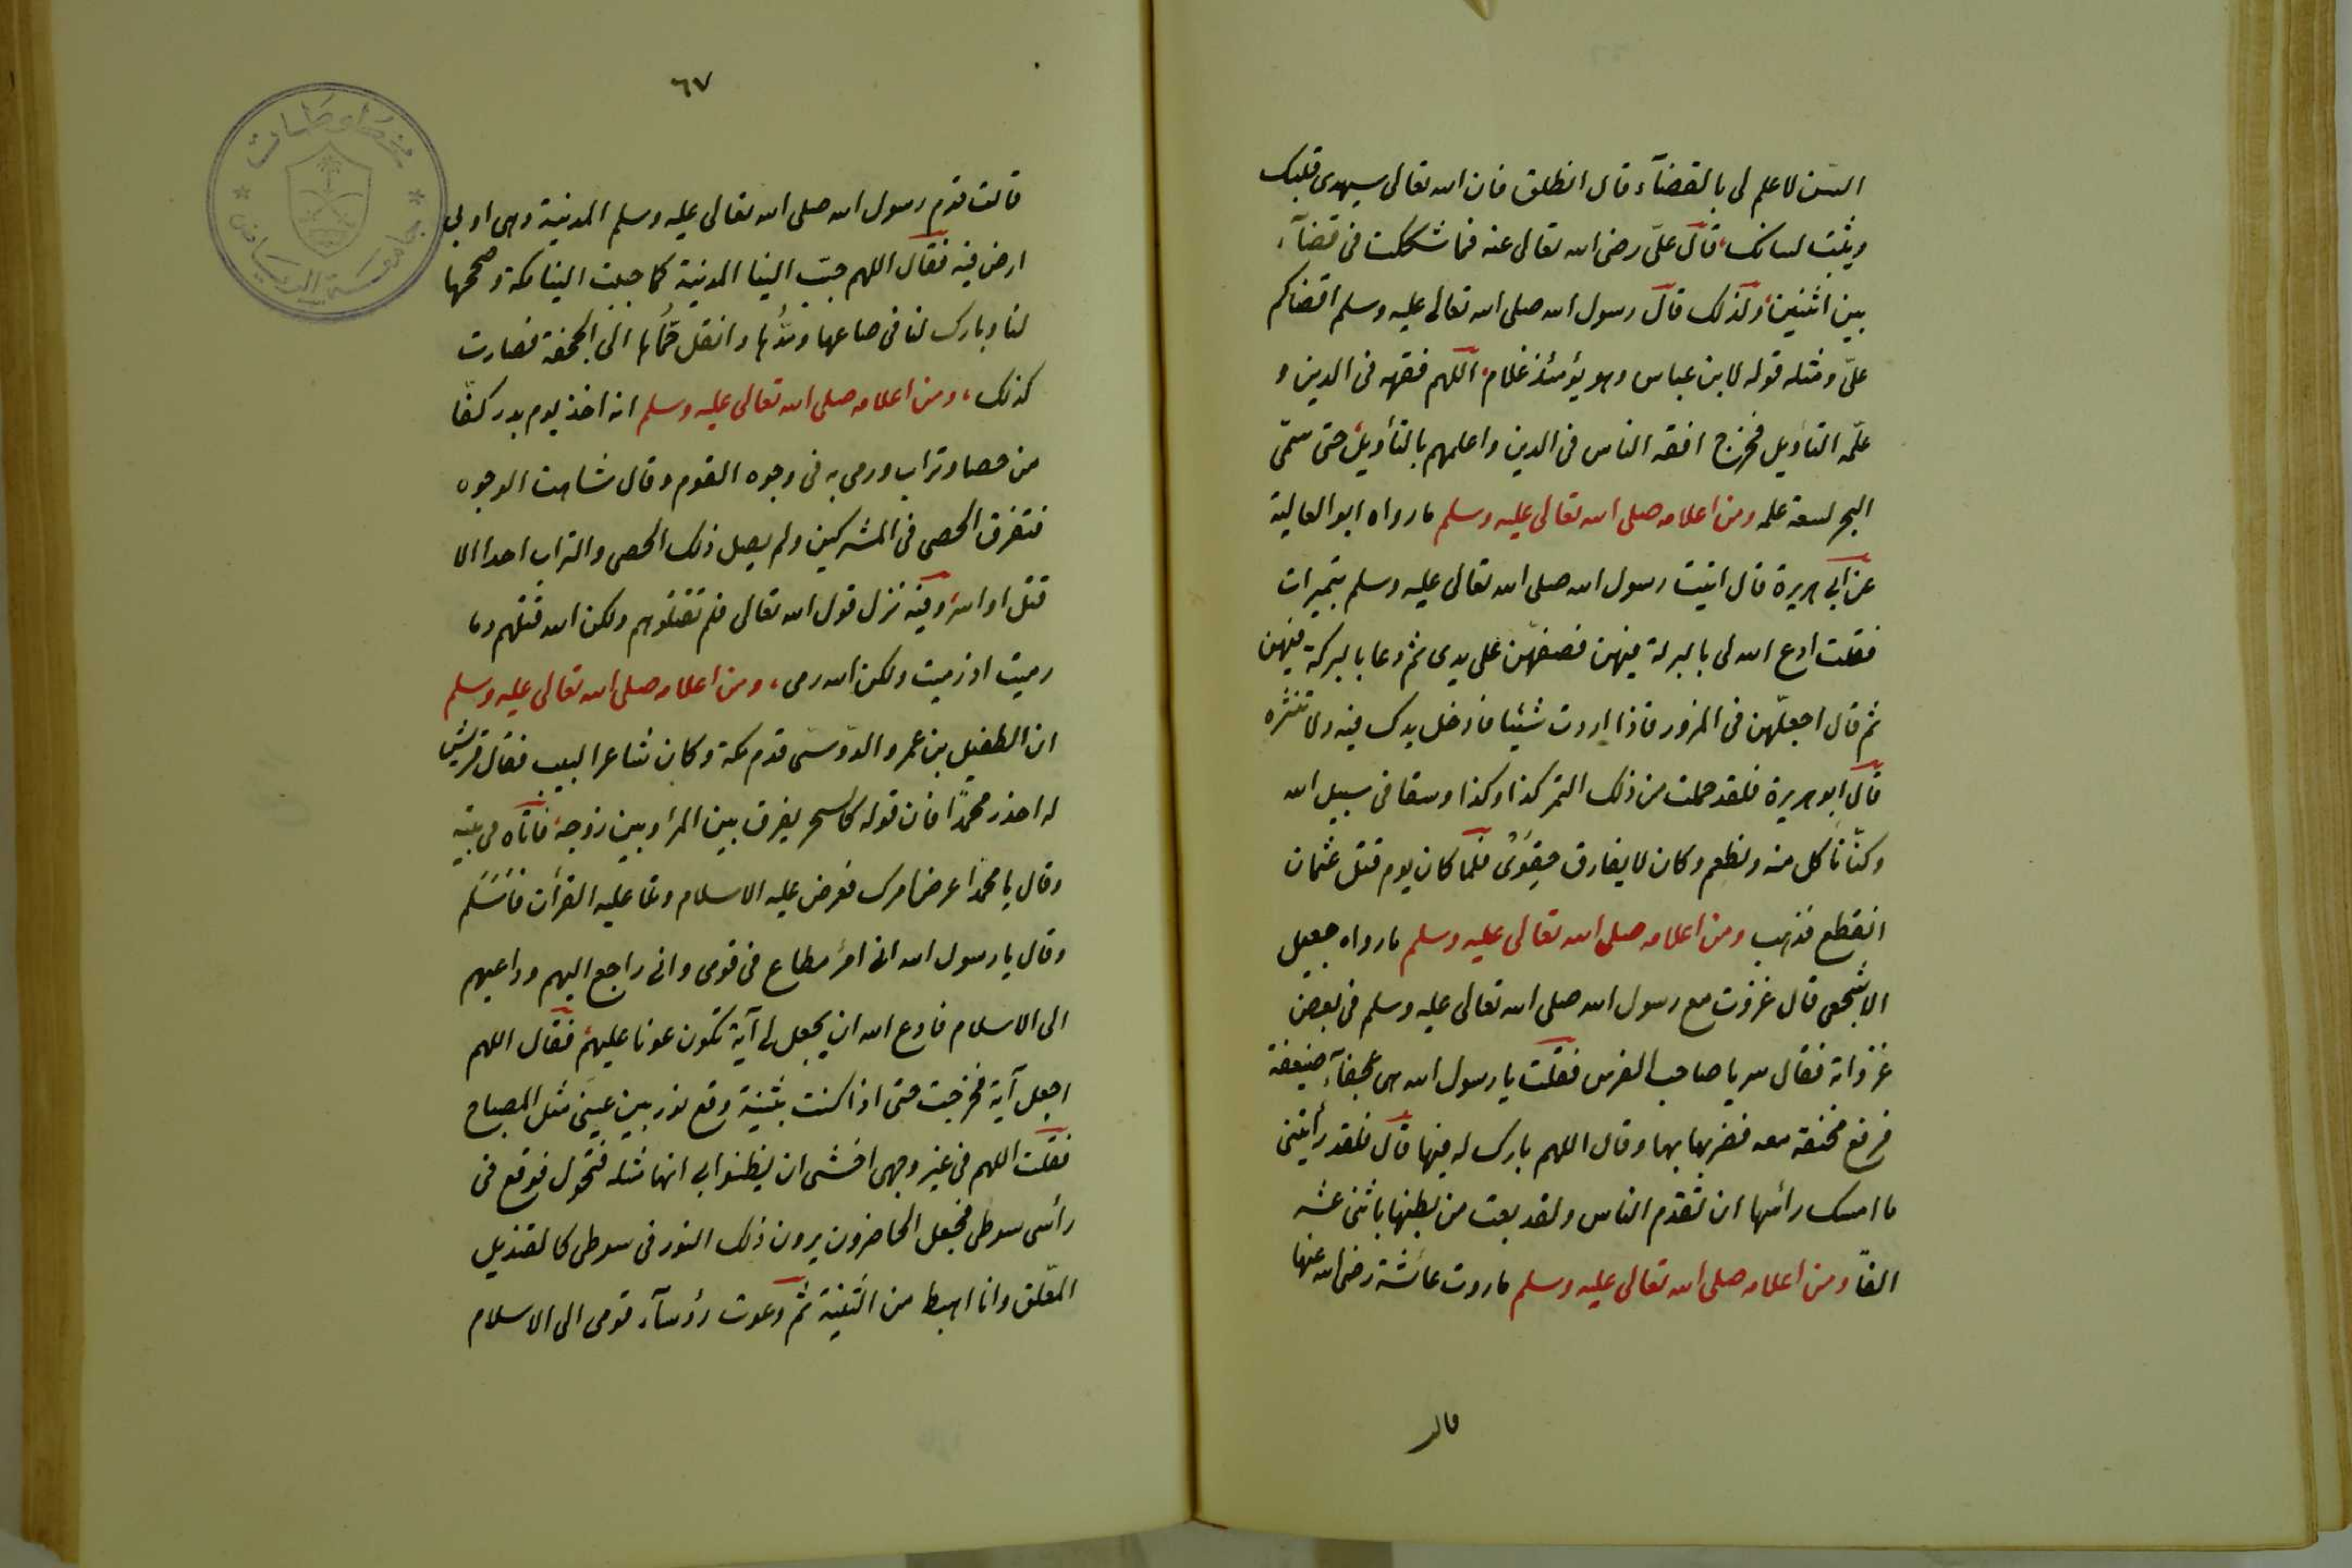 السن لا علم لى بالقضآء قال انطلق فان الله تعالى سيهدى قلبك
ويثبت لسانك، قال علىّ رضى الله تعالى عنه فما شككت فى قضآء
بين اثنين ولذلك قال رسول الله صلى الله تعالى عليه وسلم اقضاكم
علىّ ومثله قوله لابن عباس وهو يؤمئذ غلام اللهم فقهه فى الدين و
علّمه التأويل فخرج افقه الناس فى الدين واعلمهم بالتأويل حتى سمّى
البحر لسعة علمه ومن اعلامه صلى الله تعالى عليه وسلم ما رواه ابو العالية
عن ابى هريرة قال اتيت رسول الله صلى الله تعالى عليه وسلم بتميرات
فقلت ادع الله لى بالبركة فيهن فصفهّن على يدى ثم دعا بالبركة فيهن
ثم قال اجعلّهن فى المزود فاذا اردت شيئا فادخل يدك فيه ولا تنثره
قال ابو هريرة فلقد حملت من ذلك التمر كذا وكذا وسقا فى سبيل الله
وكنّا نأكل منه ونطعم وكان لا يفارق حِقوى فلما كان يوم قتل عثمان
انقطع فذهب ومن اعلامه صلى الله تعالى عليه وسلم ما رواه جعيل
الاشجعى قال غزوت مع رسول الله صلى الله تعالى عليه وسلم فى بعض
غزواته فقال سر يا صاحب الفرس فقلت يا رسول الله هى عجفآء ضعيفة
فرفع مخفقة معه فضربها بها وقال اللهم بارك له فيها قال فلقد رأيتنى
ما امسك رأسها ان تقدم الناس ولقد بعت من بطنها باثنى عشر
الفًا ومن اعلامه صلى الله تعالى عليه وسلم ما روت عائشة رضى الله عنها
قالت
٦٧
قالت قدم رسول الله صلى الله تعالى عليه وسلم المدينة وهى اوبى
ارض فيه فقال اللهم حبّب الينا المدينة كما حببت الينا مكة وصححها
لنا وبارك لنا فى صاعها ومدّها وانقل حمّاها الى الجحفة فصارت
كذلك، ومن اعلامه صلى الله تعالى عليه وسلم انه اخذ يوم بدر كفّا
من حصا وتراب ورمى به فى وجوه القوم وقال شاهت الوجوه
فتفرق الحصى فى المشركين ولم يصل ذلك الحصى والتراب احدا الا
قتل او اسر وفيه نزل قول الله تعالى فلم تقتلوهم ولكن الله قتلهم وما
رميت اذ رميت ولكن الله رمى، ومن اعلامه صلى الله تعالى عليه وسلم
ان الطفيل بن عمرو الدّوسى قدم مكة وكان شاعرا لبيب فقال قريش
له احذر محمّدًا فان قوله كالسحر يفرق بين المرأ وبين زوجه فأتاه فى بيته
وقال يا محمد اعرض امرك فعرض عليه الاسلام وتلا عليه القرأن فاسَلَم
وقال يا رسول الله انى امرُ مطاع فى قومى وانى راجع اليهم وداعيهم
الى الاسلام فادع الله ان يجعل لى آية تكون عونا عليهم فقال اللهم
اجعل آية فخرجت حتى اذا كنت بثنية وقع نور بين عينى مثل المصباح
فقلت اللهم فى غير وجهى اخشى ان يظنوا بى انها مثلة فتحول فوقع فى
رأس سوطى فجعل الحاضرون يرون ذلك النور فى سوطى كالقنديل
المعّلق وانا اهبط من الثنية ثم دعوت رؤسآء قومى الى الاسلام
مخطوطات
جامعة الرياض